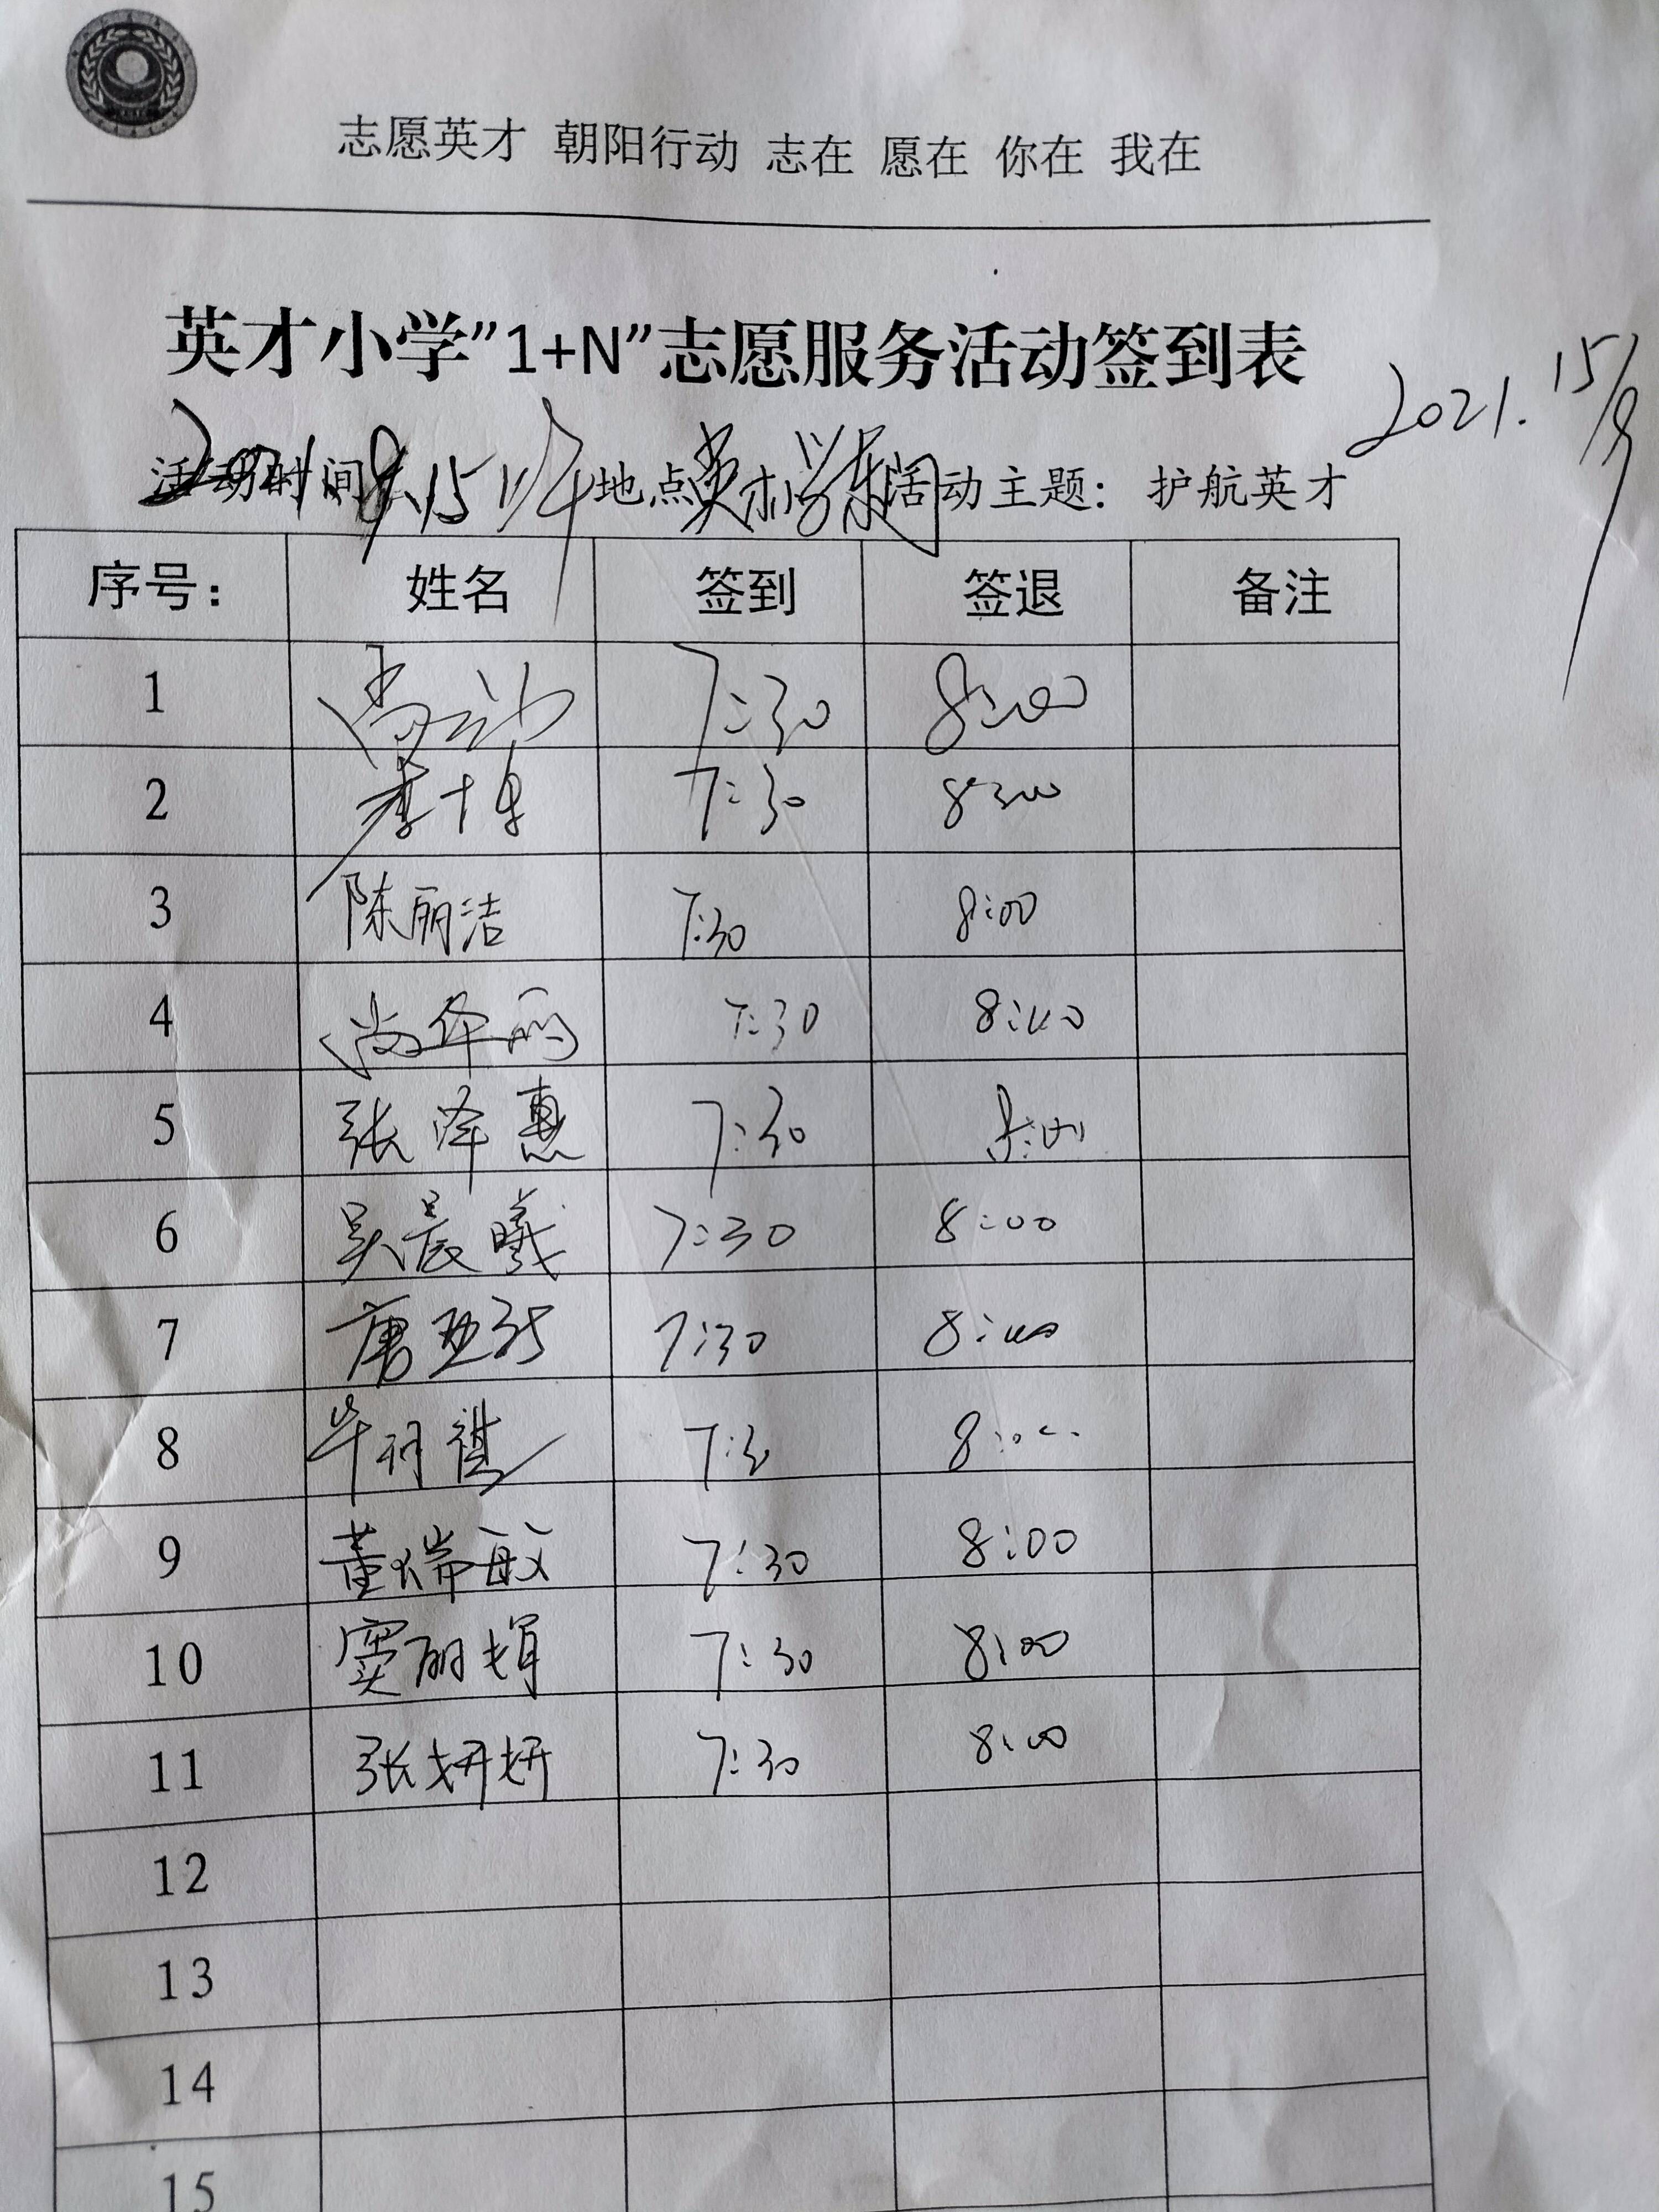 志愿英才 朝阳行动 志在 愿在 你在 我在
英才小学”1+N”志愿服务活动签到表
2021. 15/9
活动时间 9.15 地点 活动主题： 护航英才
序号： 姓名 签到 签退 备注
1 7:30 8:00
2 李博 7:30 8:00
3 陈丽洁 7:30 8:00
4 尚华丽 7:30 8:00
5 张泽惠 7:30 8:00
6 吴晨曦 7:30 8:00
7 唐亚 7:30 8:00
8 7:30 8:00
9 董瑞敏 7:30 8:00
10 窦丽娟 7:30 8:00
11 张妍妍 7:30 8:00
12
13
14
15